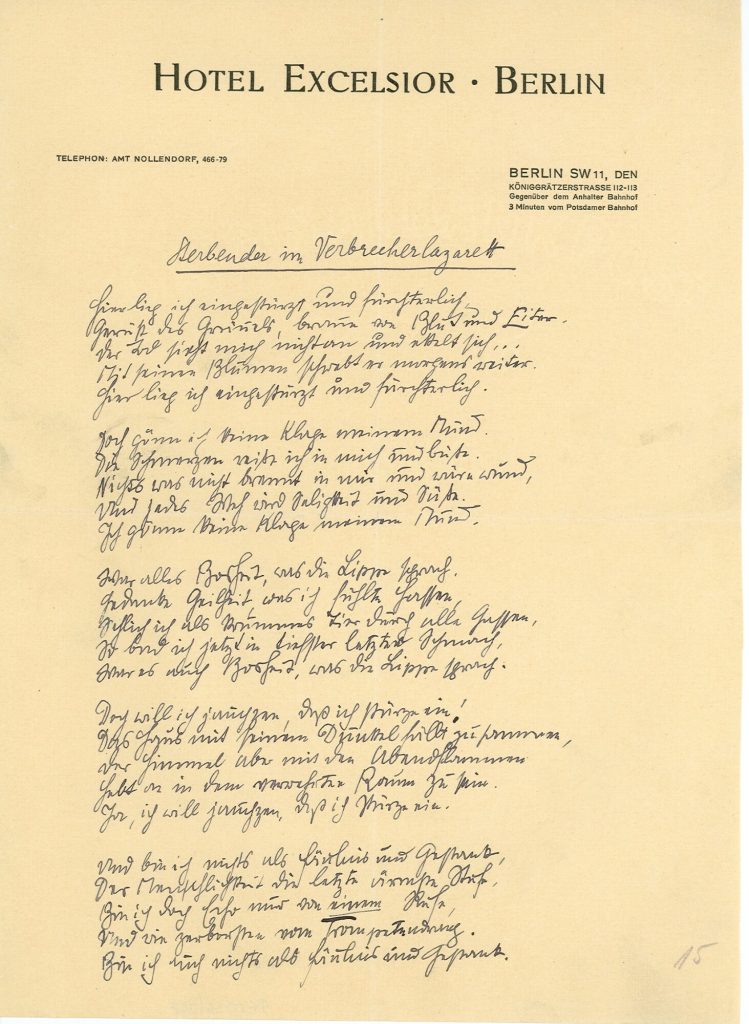 HOTEL EXCELSIOR · BERLIN
TELEPHON: AMT NOLLENDORF, 466-79
BERLIN SW 11, DEN
KÖNIGGRÄTZERSTRASSE 112-113
Gegenüber dem Anhalter Bahnhof
3 Minuten vom Potsdamer Bahnhof
Sterbender im Verbrecherlazarett
Hier lieg ich eingestürzt und fürchterlich,
Gerüst des Greuels, braun von Blut und Eiter.
Der Tod sieht mich nicht an und ekelt sich..
Mit seinen Blumen schwebt er morgens weiter.
Hier lieg ich eingestürzt und fürchterlich.
Doch gönn ich keine Klage meinem Mund.
Die Schmerzen reiße ich in mich und büße.
Nichts was nicht brennt in mir und wäre wund,
Und jedes Weh wird Seligkeit und Süße.
Ich gönne keine Klage meinem Mund.
War alles Bosheit, was die Lippe sprach.
Gedanke Geilheit, was ich fühlte Hassen,
Schlich ich als krummes Tier durch alle Gassen,
So bad ich jetzt in tiefster letzter Schmach,
War es auch Bosheit, was die Lippe sprach.
Doch will ich jauchzen, daß ich stürze ein!
Das Haus mit seinem Dünkel fällt zusammen,
Der Himmel aber mit den Abendflammen
Hebt an in dem verwehrten Raum zu sein.
Ja, ich will jauchzen, daß ich stürze ein.
Und bin ich nichts als Fäulnis und Gestank,
Der Menschlichkeit die letzte ärmste Stufe,
Bin ich doch Echo nur von einem Rufe,
Und wie zerborsten vom Trompetendrang.
Bin ich auch nichts als Fäulnis und Gestank.
15